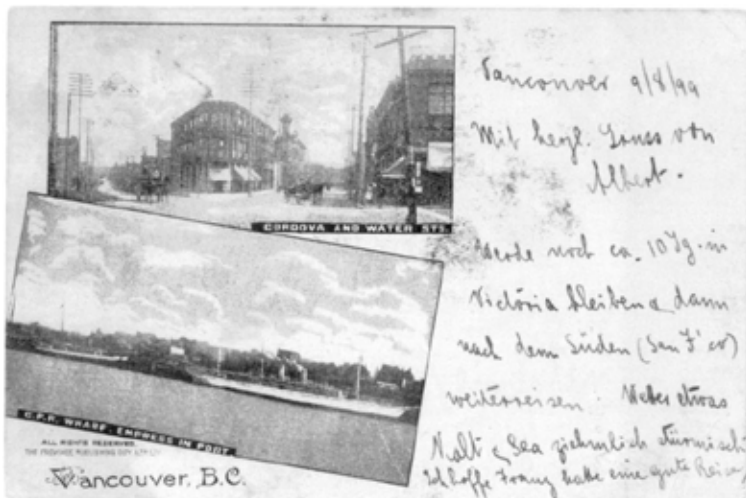 CORDOVA AND WATER STS.
C.P.R. WHARF. EMPRESS IN PORT.
ALL RIGHTS RESERVED.
THE PROVINCE PUBLISHING
Vancouver, B.C.
Vancouver 9/8/99
Mit herzl. Gruss von
Albert.
Werde noch ca. 10 Tg. in
Victoria bleiben & dann
nach dem Süden (San F'co)
weiterreisen. Wetter etwas
kalt & Sea ziehmlich stürmisch
Ich hoffe Franz hatte eine gute Reise